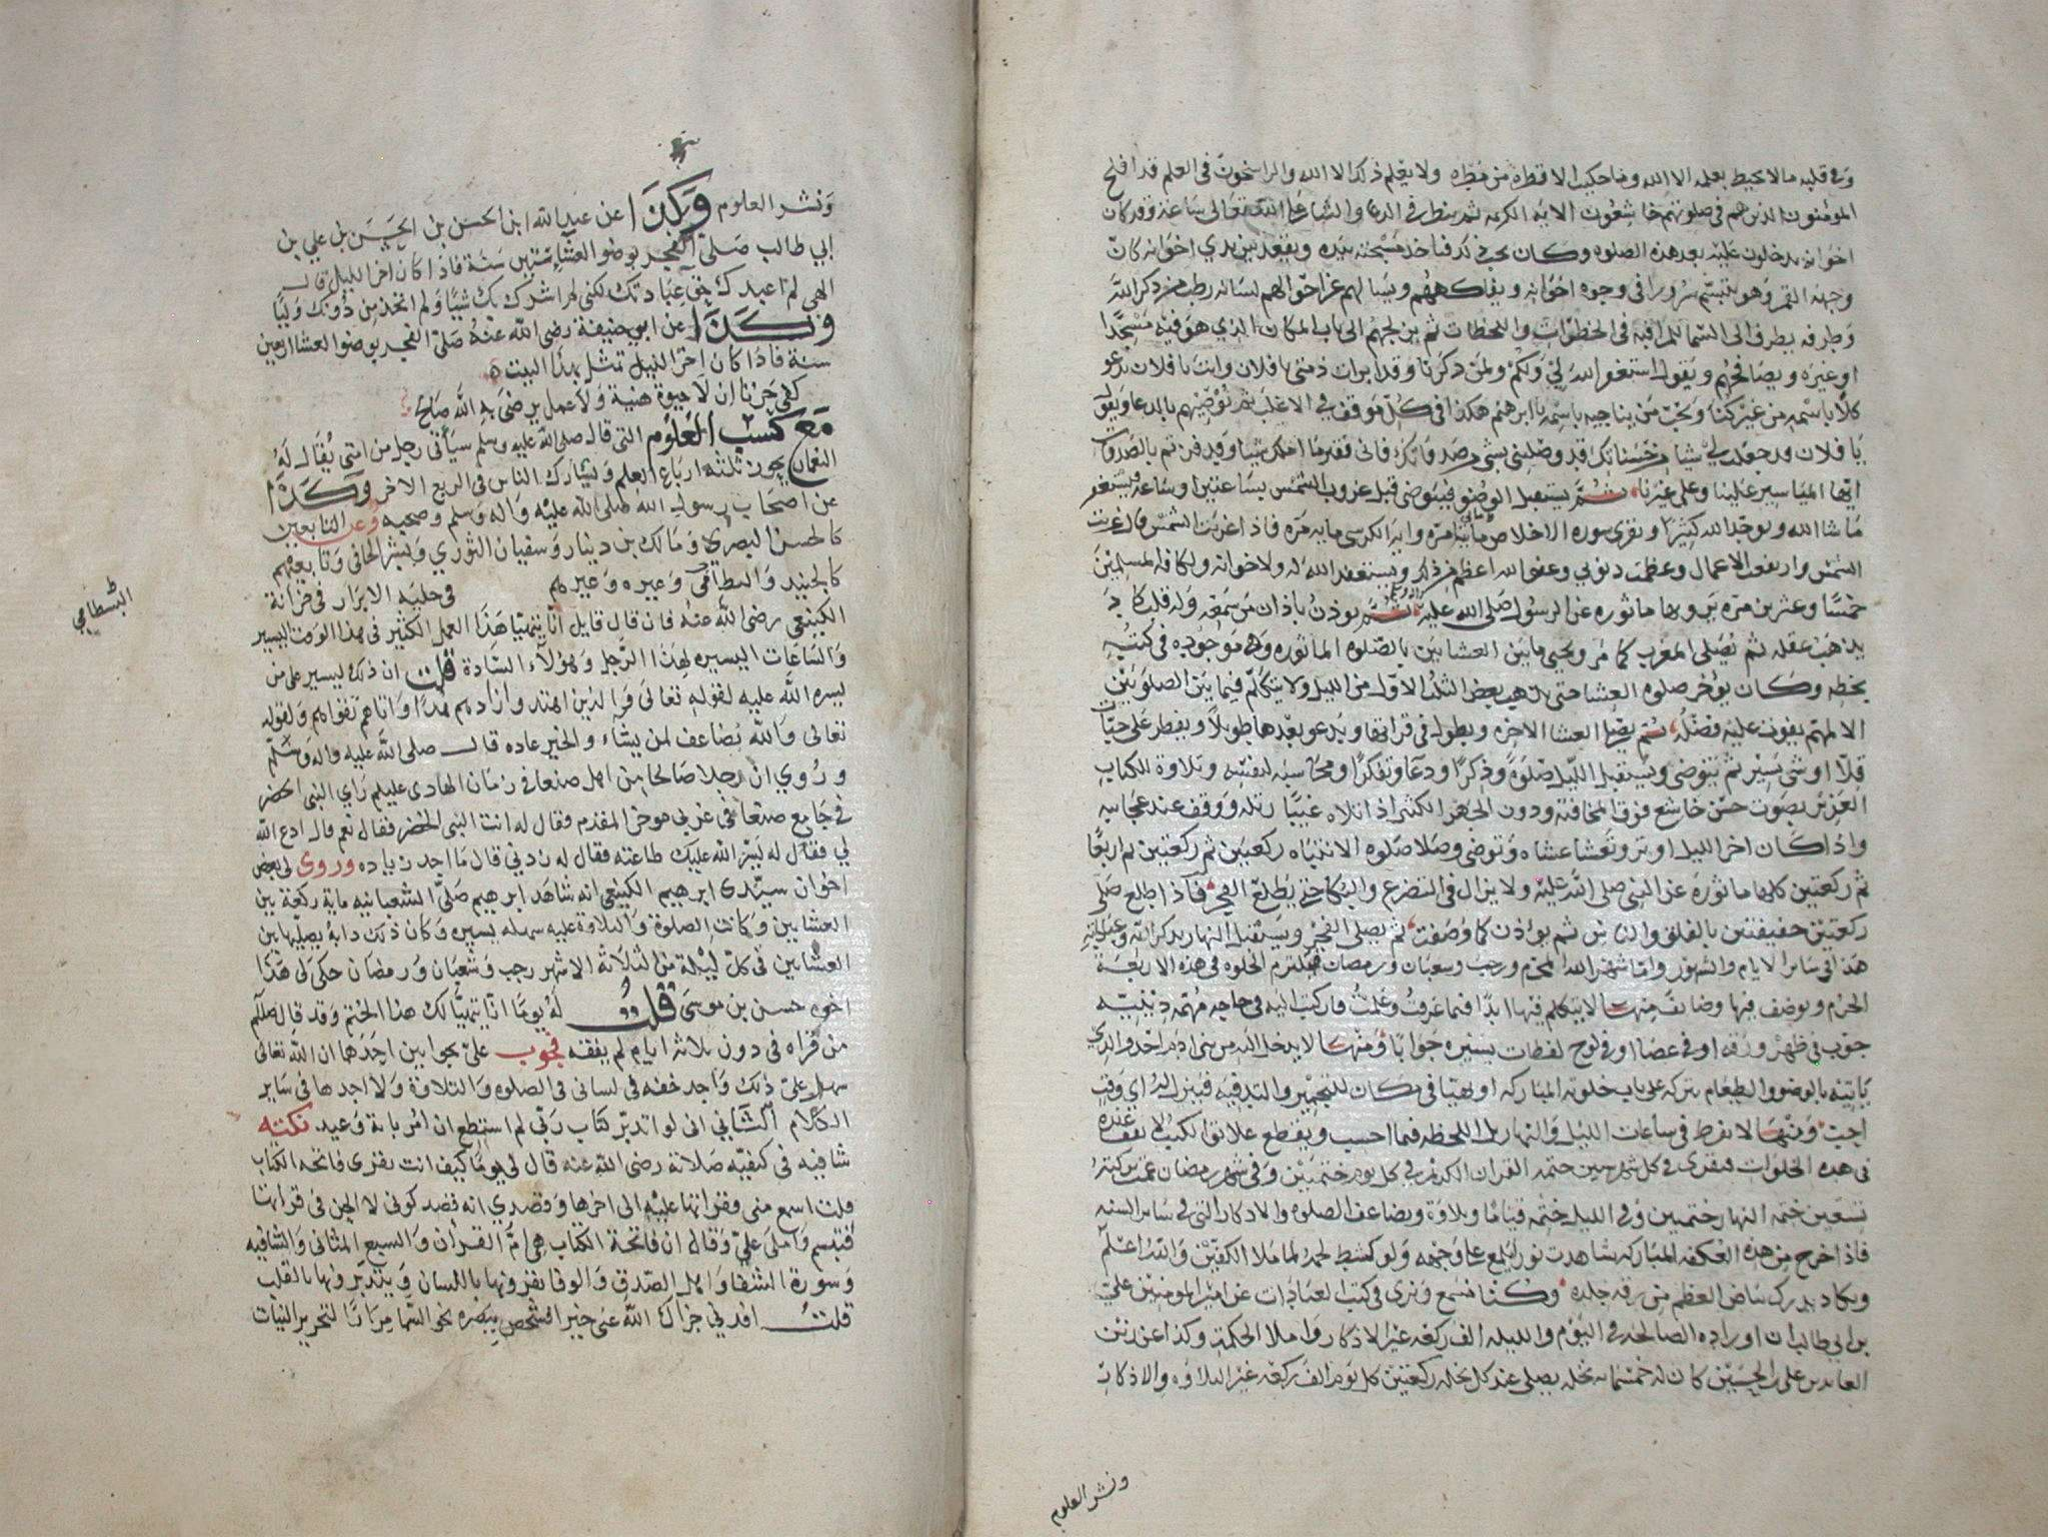 وفي قلبه ما لا يحيط بعلمه الا الله وما حكيت الا قطرة من مطره ولا يعلم ذلك الا الله والراسخون في العلم قد افلح
المومنون الذين هم في صلوتهم خاشعون الايه الكريمه ثم ينظر في الدعا والثنا على الله تعالى ساعة وقد كان
اخوانه يدخلون عليه بعد هذه الصلوه وكان يحب ذكر فياخذ مسبحته بيده ويقعد بين يدي اخوانه كان
وجهه القمر وهو يتبسم سرورا في وجوه اخوانه ويفاكههم ويسالهم عن احوالهم لسانه رطب من ذكر الله
وطرفه يطرف الى السما للمراقبه في الخطرات واللحظات ثم يزلجهم الى باب المكان الذي هو فيه مسجدا
او غيره ويصافحهم ويقول استغفر الله لي ولكم ولمن ذكرنا وقد ابرات ذمتي يا فلان وانت يا فلان يدعو
كلا باسمه من غير كنا ويحب من يناجيه باسمه يا ابرهيم هكذا في كل موقف في الاغلب ثم يوصيهم بالدعا ويقول
يا فلان قد جعلت لي شيا من حسناتك قد وصلني بشي من صدقاتك فاني فقير ما املك شيا
ايها المياسير علينا وعلى غيرنا ثم يستقبل الوضو فيتوضى قبل غروب الشمس بساعتين او ساعه ويستغفر
ما شا الله ويوحد الله كثيرا ويقرى سوره الاخلاص مايتي مره واية الكرسي مايه مره فاذا غربت الشمس قال غربت
الشمس وارتفعت الاعمال وعظمت ذنوبي وعفو الله اعظم من ذلك ويستغفر الله له ولاخوانه ولكافة المسلمين
خمسا وعشرين مره يرويها ماثوره عن الرسول صلى الله عليه ثم يوذن باذان من سمعه وله قلب كاد
يذهب عقله ثم يصلي المغرب كما مر ويحيي ما بين العشاين بالصلوه الماثوره وهي موجوده في كتبه
بخطه وكان يوخر صلوه العشا حتى يذهب بعض الثلث الاول من الليل ولا يتكلم فيما بين الصلوتين
الا لمهم يفوت عليه فضله ثم يصلي العشا الاخره ويطول في قراتها ويدعو بعدها طويلا ويفطر على حبات
قلا او شي يسير ثم يتوضى ويستقبل الليل صلوة وذكرا ودعا وتفكرا ومحاسبه لنفسه وتلاوة الكتاب
العزيز بصوت حسن خاشع فوق المخافته ودون الجهر الكثير اذا تلاه غيبا رتله ووقف عند عجايبه
واذا كان اخر الليل اوتر وتعشا عشاه وتوضى وصلا صلوه الانتباه ركعتين ثم ركعتين ثم اربعا
ثم ركعتين كلها ماثورة عن النبي صلى الله عليه ولا يزال في التضرع والبكا حتى يطلع الفجر فاذا طلع صلى
ركعتين خفيفتين بالفلق والناس ثم يوذن كما وصفت ثم يصلي الفجر ويستقبل النهار بذكر الله وعبادته
هذا في ساير الايام والشهور واما شهر الله المحرم ورجب وشعبان ورمضان فيلتزم الخلوه في هذه الاربعة
الحرم ويوظف فيها وظائف منها لا يتكلم فيها ابدا فيما عرفت وعلمت فان كتبت اليه في حاجه مهمه دينيه
جوب في ظهر ورقه او في عصا او في لوح لفظات يسيره جوابا ومنها لا يدخل اليه من بني ادم احد والذي
ياتيه بالوضو والطعام يتركه على باب خلوته المباركه
اجيت ومنها لا يفرط في ساعات الليل والنهار بل اللحظه فيما احسب ويقطع علايق الكتب
في هذه الخلوات فيقرى في كل شهر حين ختمه القران الكريم في كل يوم ختمتين وفي شهر رمضان عمت بركته
تسعين ختمه النهار ختمتين وفي الليل ختمه قياما وتلاوة ويضاعف الصلوه والاذكار التي في ساير السنه
فاذا خرج من هذه العكفه المباركه شاهدت نورا يلمع على وجهه ولو كشط لحمه لما ملا الكفين والله اعلم
ويكاد يدرك بياض العظم من رقه جلده وكنا نسمع ونرى في كتب العبادات عن امير المومنين علي
بن ابي طالب ان اوراده الصالحه في اليوم والليله الف ركعه غير الاذكار واملا الحكمة وكذا عن زين
العابدين علي بن الحسين كان له خمسمايه نخله يصلي عند كل نخله ركعتين كل يوم الف ركعه غير التلاوه والاذكار
ونشر العلوم
ونشر العلوم وكذا عن عبد الله ابن الحسن بن الحسين بن علي بن
ابي طالب صلى الفجر بوضو العشا ستين سنة فاذا كان اخر الليل قال
الهي لم اعبدك حق عبادتك لكني لم اشرك بك شيا ولم اتخذ من دونك وليا
وكذا عن ابي حنيفة رضي الله عنه صلى الفجر بوضو العشا اربعين
سنة فاذا كان اخر الليل تمثل بهذا البيت
كفى حزنا ان لا حيوة هنية ولا عمل يرضى به الله صالح
مع كسب العلوم التي قال صلى الله عليه وسلم سياتي رجل من امتي يقال له
النعمان يحوز ثلثة ارباع العلم ويشارك الناس في الربع الاخر وكذا
عن اصحاب رسول الله صلى الله عليه واله وسلم وصحبه وعن التابعين
كالحسن البصري ومالك بن دينار وسفيان الثوري وبشر الحافي وتابعيهم
كالجنيد والبسطامي وغيره وغيرهم في حلية الابرار في خزانة
البسطامي
الكينعي رضي الله عنه فان قال قايل انا يتهيا هذا العمل الكثير في هذا الوقت اليسير
والساعات اليسيره لهذا الرجل وهؤلاء السادة قلت ان ذلك ليسير على من
يسره الله عليه لقوله تعالى والذين اهتدوا زادهم هدا واتاهم تقواهم ولقوله
تعالى والله يضاعف لمن يشاء والخير عاده قال صلى الله عليه واله وسلم
وروي ان رجلا صالحا من اهل صنعا في زمان الهادي عليلم راى النبي الخضر
في جامع صنعا في غربي هو خر المقدم فقال له انت النبي الخضر فقال نعم قال ادع الله
لي فقال له يسر الله عليك طاعته فقال له زدني قال ما اجد زياده وروى لي بعض
اخوان سيدي ابرهيم الكينعي انه شاهد ابرهيم صلى الشعبانيه ماية ركعة بين
العشايين وكانت الصلوة والتلاوة عليه سهله يسيره وكان ذلك دابه يصليها بين
العشايين في كل ليلة من الثلاثة الاشهر رجب وشعبان ورمضان حكى لي هذا
اخوه حسن بن موسى قلت له يوما انا يتهيا لك هذا الختم وقد قال صللم
من قراه في دون ثلاثه ايام لم يفقه فجوب علي بجوابين احدهما ان الله تعالى
سهل علي ذلك واجد خفه في لساني في الصلوه والتلاوة ولا اجدها في ساير
الكلام الثاني اني لو اتدبر كتاب ربي لم استطع ان امر باية وعيد نكته
شافيه في كيفيه صلاته رضي الله عنه قال لي يوما كيف انت تقرى فاتحه الكتاب
قلت اسمع مني وقراتها عليه الى اخرها وقصدي انه قصد كوني لا الحن في قراتها
فتبسم واملى علي وقال ان فاتحة الكتاب هي ام القران والسبع المثاني والشافيه
وسورة الشفا واهل الصدق والوفا يقرونها باللسان ويتدبرونها بالقلب
قلت افدني جزاك الله عني خيرا فشخص ببصره نحو السما مرارا لتحرير النيات